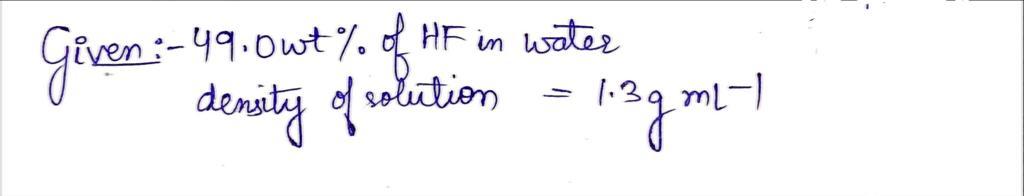 Given :- 49.0wt% of HF in water
density of solution = 1.3g mL-1